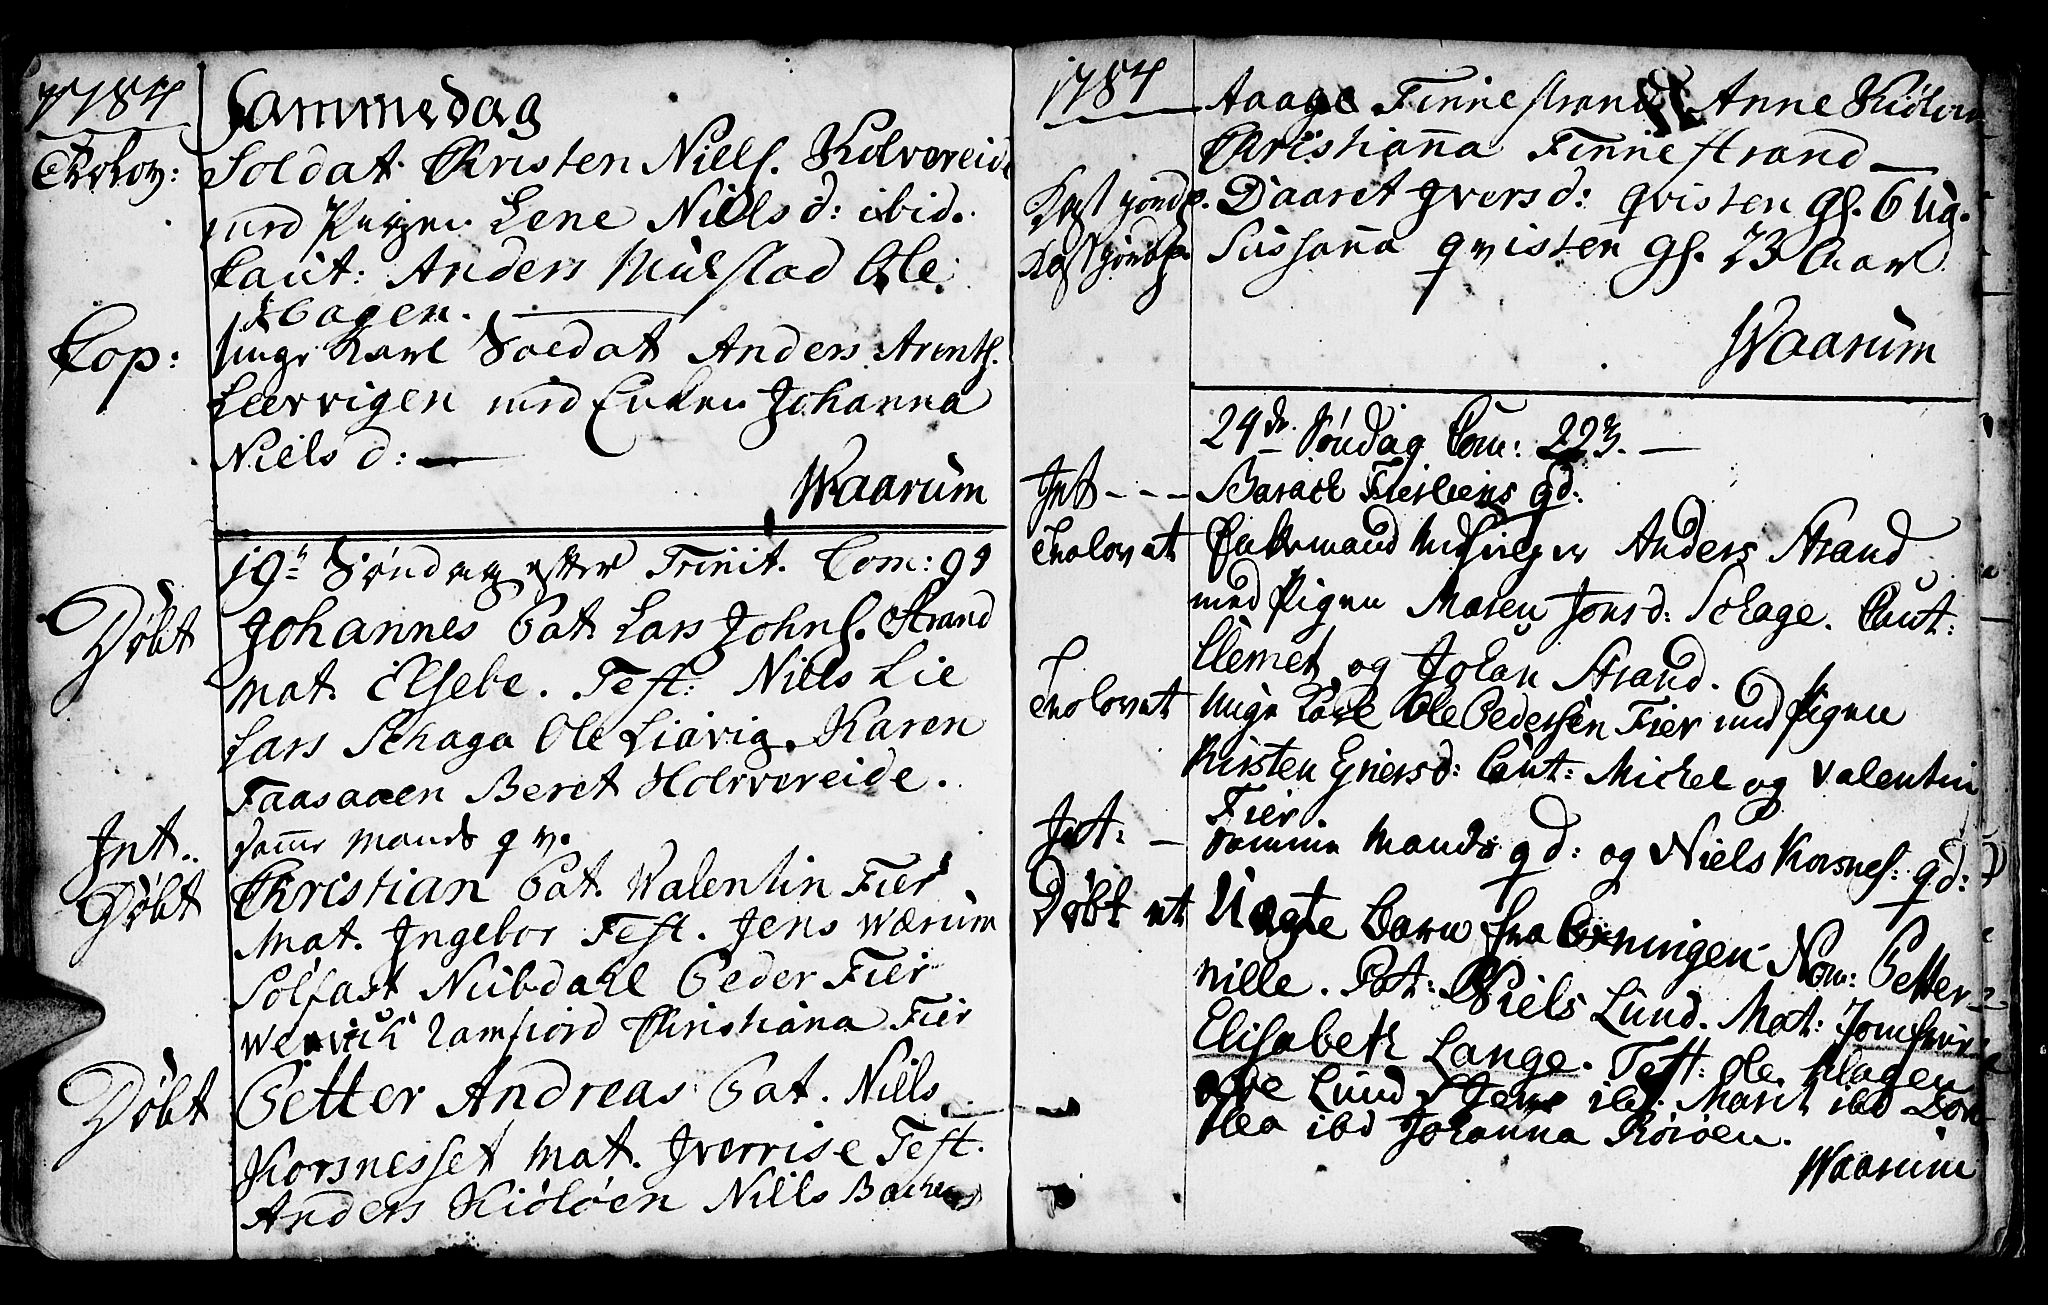 1784
Sammedag
Trolov: Soldat Christen Niels. Kolvereide
med Pigen Lene Nielsd: ibid.
Caut: Anders Mulstad Ole
Hagen.
Cop: Unge Karl Soldat Anders Arents.
Leervigen med Enken Johanna
Nielsd:
Waarum
19de Søndag efter Trinit. Com: 99
Døbt Johannes Pat. Lars Johns. Strand
Mat. Elsebe. Test: Niels Lie
Lars Schaga Ole Liavig. Karen
Faasaaen Beret Holvereide.
Int.. Samme Mands qv.
Døbt Christian Pat. Walentin Fier
Mat. Ingebor Test. Jens Wærum
Solfast Nubdahl Peder Fier
Ramfiord Christiana Fier
Døbt Petter Andreas Pat. Niels
Korsnesset Mat. Iverrise Test.
Anders Kiøløen Niels
1784
Aaage Finnestrand Anne
Christianna Finnestrand
Daaret Iversd: qvisten gl. 6 Ug.
Sussanna qvisten gl. 73 Aar
Waarum
24de Søndag Com: 223.
Int - - - Barack Fierliens qd:
Trolovet Enkemand Anders Strand
med Pigen Maren Jonsd: Schage. Caut:
Clemet og Johan Strand.
Trolovet Unge Karl Ole Pedersen Fier med Pigen
Kirsten Griersd: Caut: Michel og Valentin
Fier
Int: Samme Mands qd: og Niels Korsnes: qd:
Døbt et Uægte Barn fra Nom: Petter-
nille. Pat: Niels Lund. Mat: Jomfrue
Elisabeth Lange. Test: Ole Hagen
Lund Jens ibd: Marit ibd
ibd Johanna
Waarum